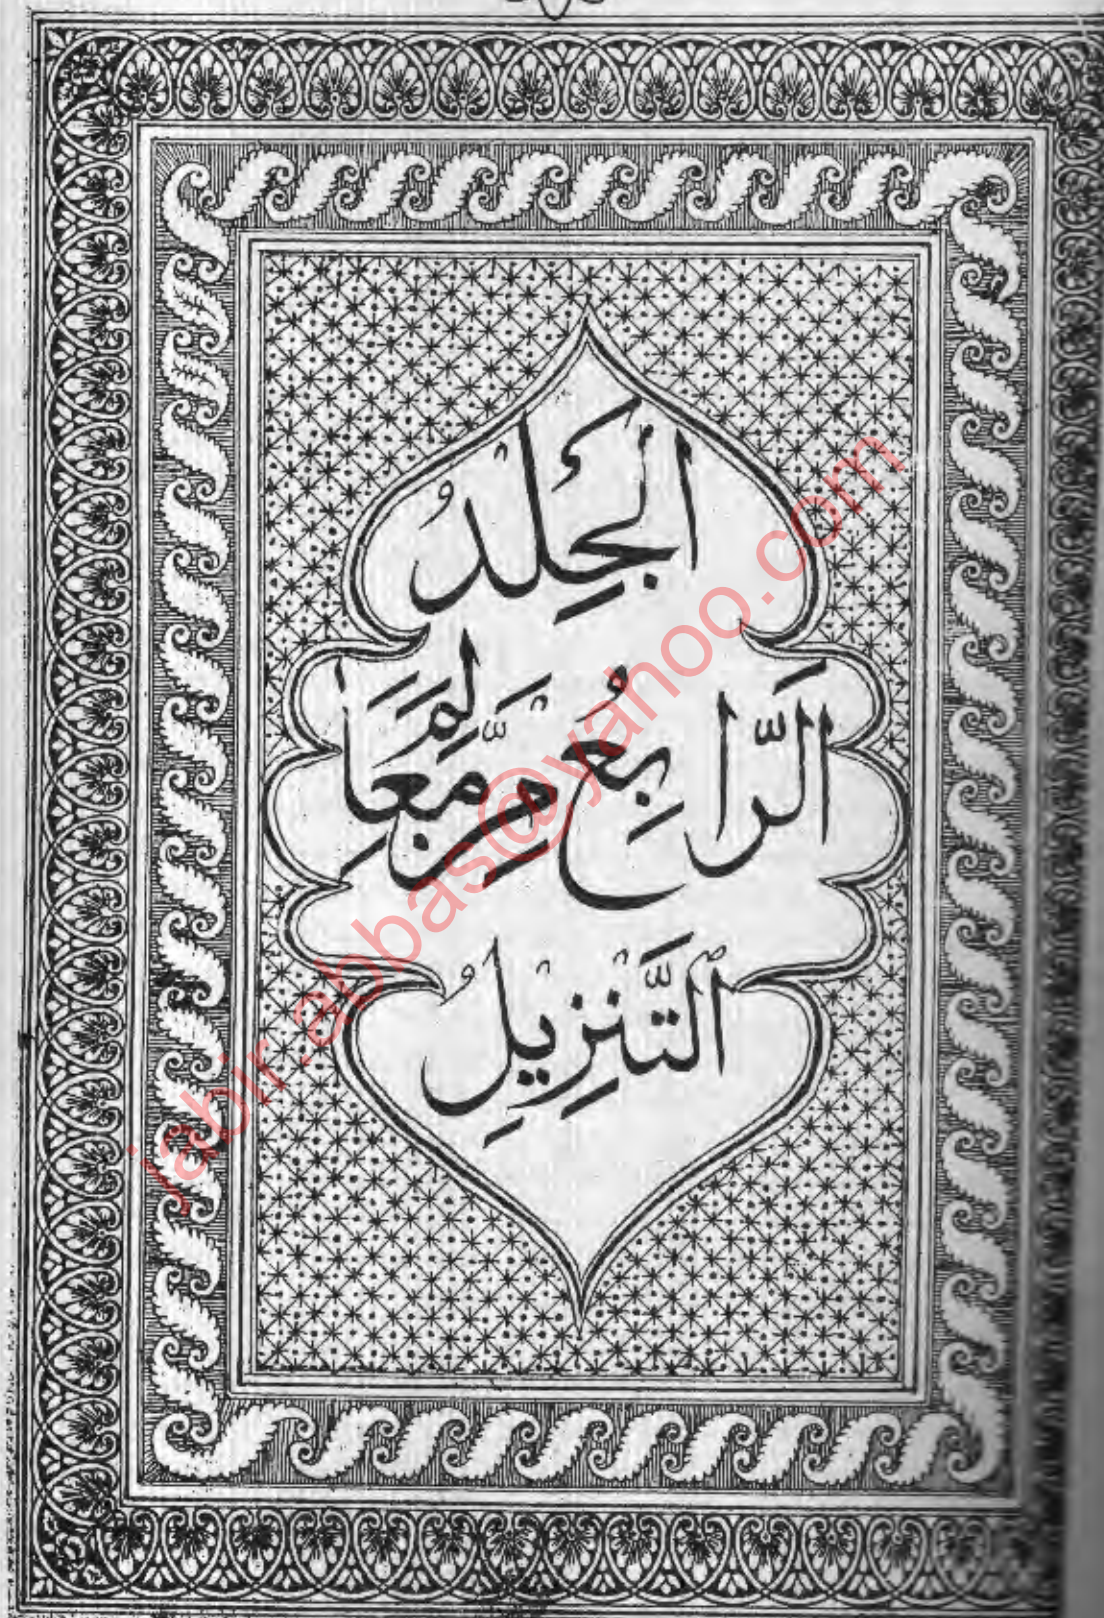 اَلْجِلْدُ
اَلرَّابِعُ مِنْ مَعَالِمِ
اَلتَّنْزِيلِ
jabir.abbas@yahoo.com